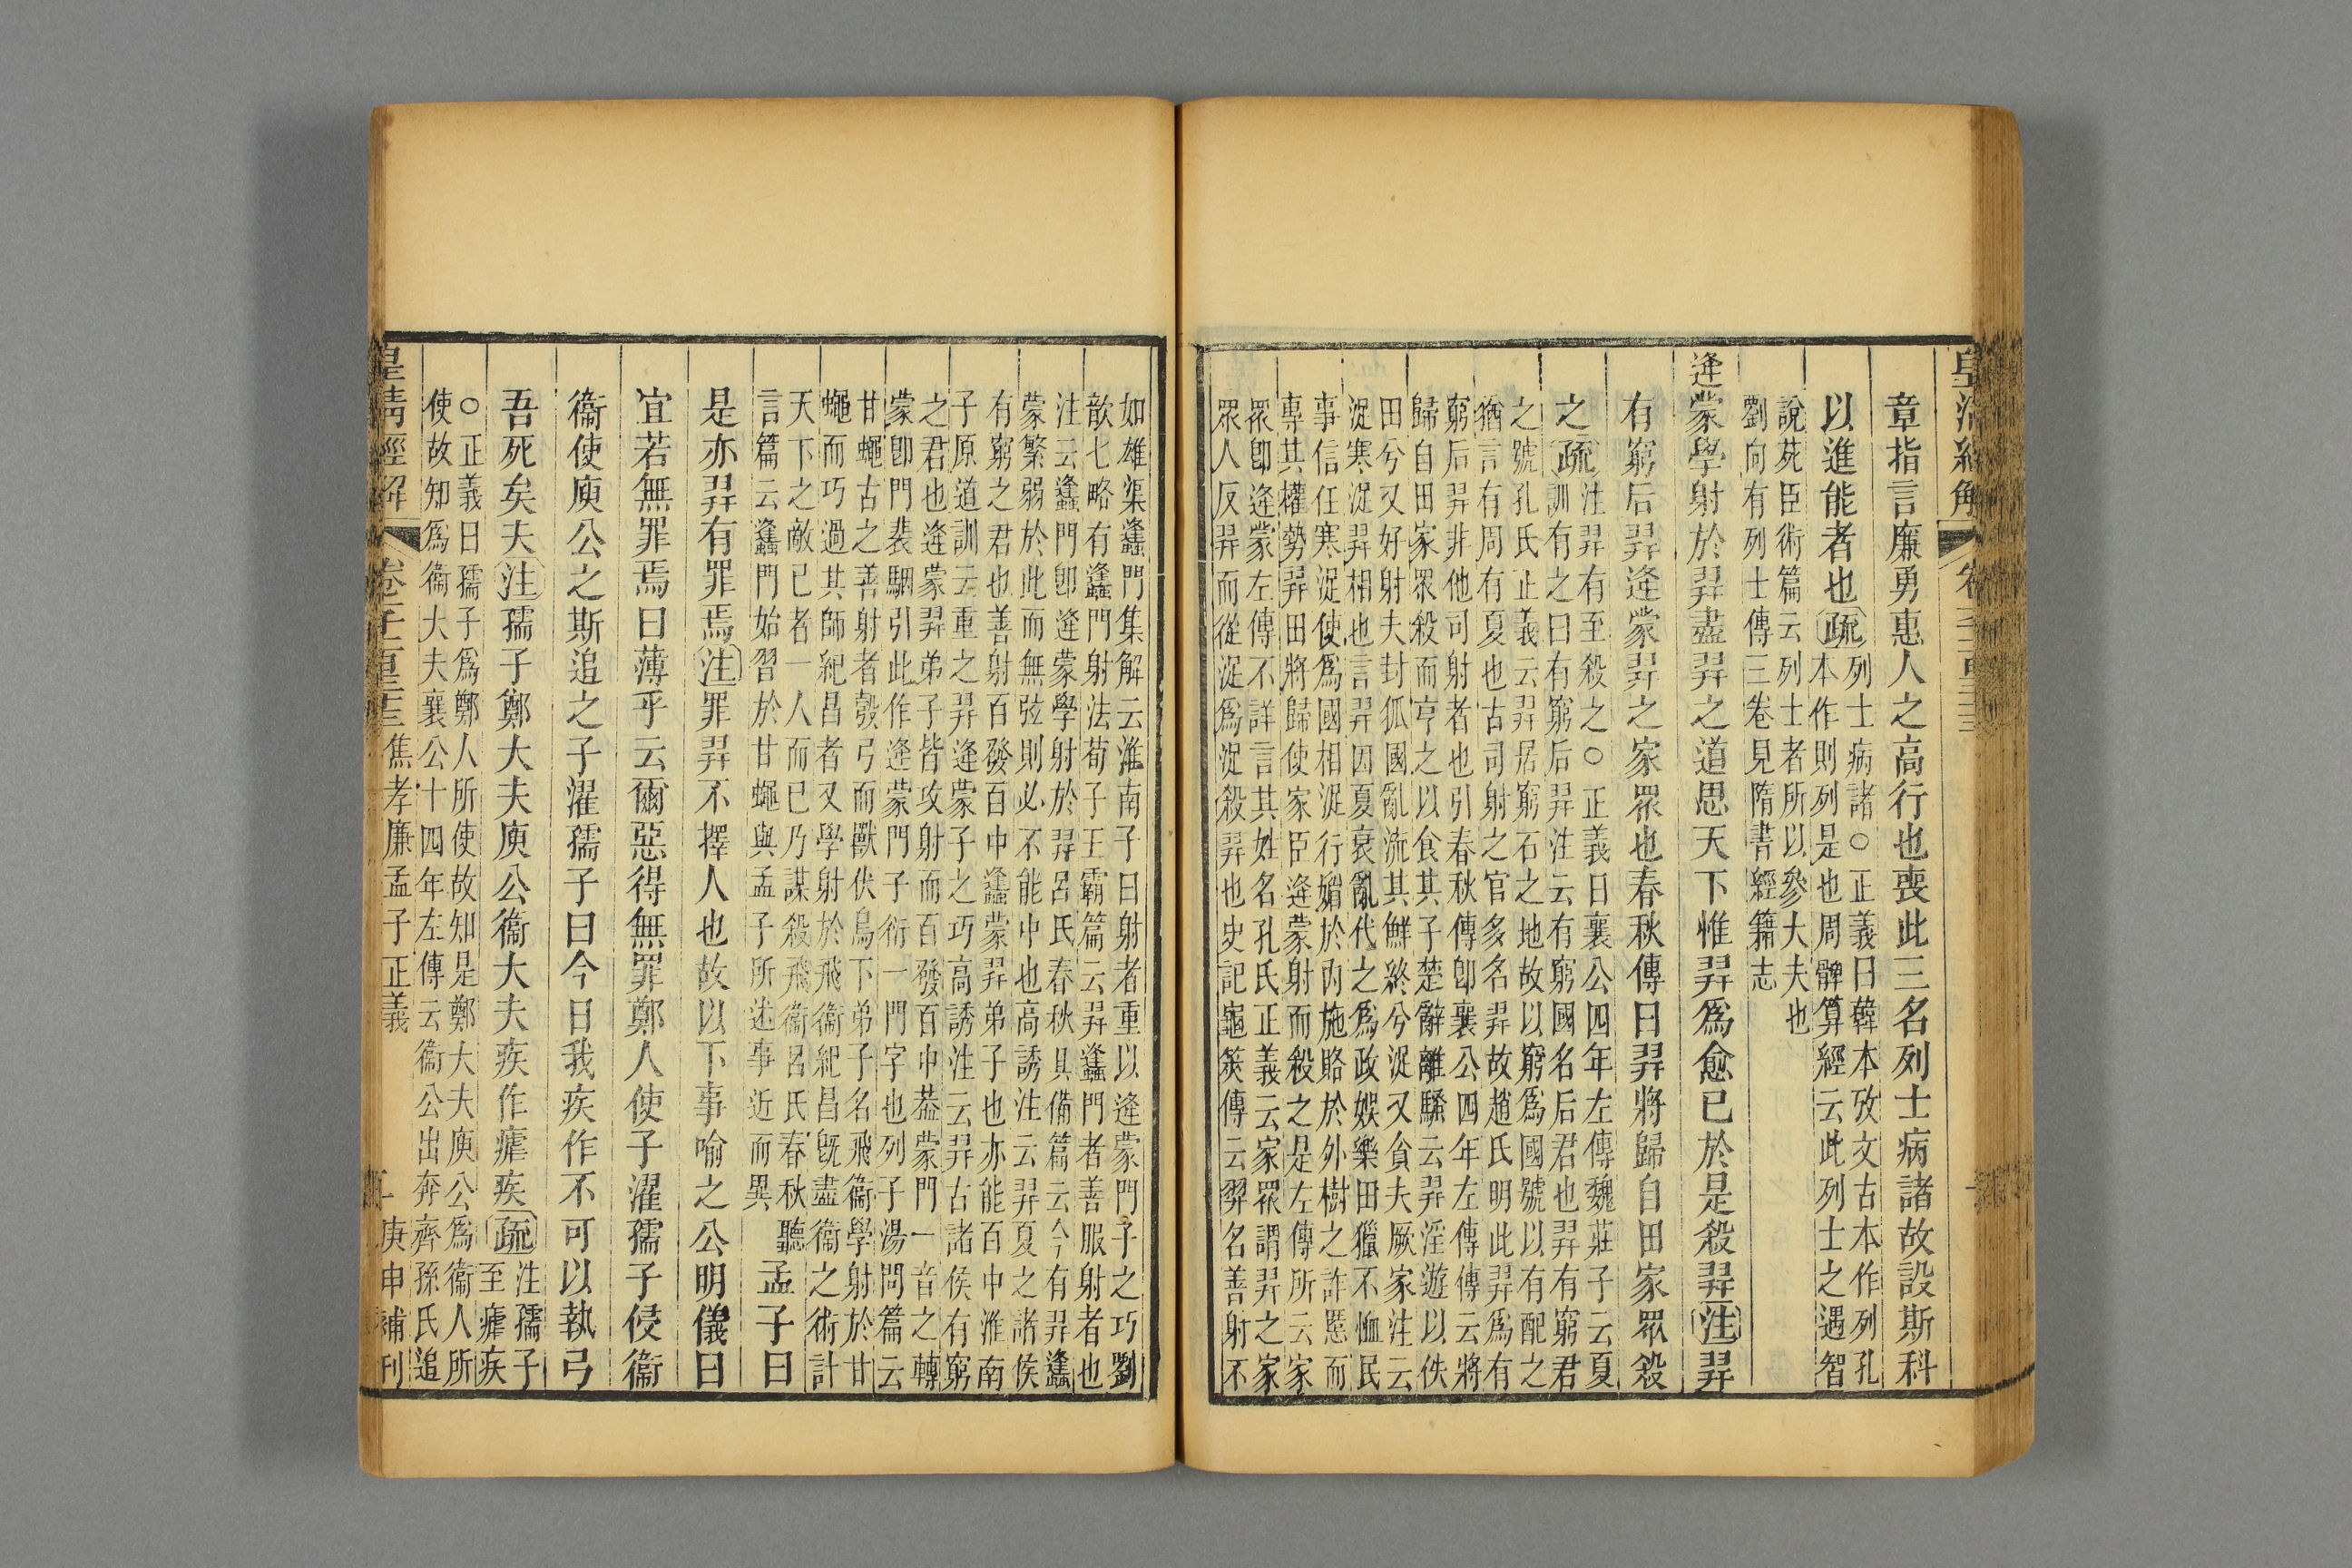 皇清經解
章指言廉勇惠人之高行也喪此三名列士病諸故設斯科
以進能者也疏
列士病諸○正義曰韓本攷文古本作列孔
本作則列是也周髀算經云此列士之遇智
說苑臣術篇云列士者所以參大夫也
劉向有列士傳三卷見隋書經籍志
逄蒙學射於羿盡羿之道思天下惟羿爲愈己於是殺羿注羿
有窮后羿逄蒙羿之家眾也春秋傳曰羿將歸自田家眾殺
之疏
注羿有至殺之○正義曰襄公四年左傳魏莊子云夏
訓有之曰有窮后羿注云有窮國名后君也羿有窮君
之號孔氏正義云羿居窮石之地故以窮爲國號以有配之
猶言有周有夏也古司射之官多名羿故趙氏明此羿爲有
窮后羿非他司射者也引春秋傳卽襄公四年左傳傳云將
歸自田家眾殺而亨之以食其子楚辭離騷云羿淫遊以佚
田兮又好射夫封狐國亂流其鮮終兮浞又貪夫厥家注云
浞寒浞羿相也言羿因夏衰亂代之爲政娛樂田獵不恤民
事信任寒浞使爲國相浞行媚於內施賂於外樹之詐慝而
專其權勢羿田將歸使家臣逄蒙射而殺之是左傳所云家
眾卽逄蒙左傳不詳言其姓名孔氏正義云家眾謂羿之家
眾人反羿而從浞爲浞殺羿也史記龜筴傳云羿名善射不
如雄渠蠭門集解云淮南子曰射者重以逄蒙門子之巧劉
歆七略有蠭門射法荀子王霸篇云羿蠭門者善服射者也
注云蠭門卽逄蒙學射於羿呂氏春秋具備篇云今有羿蠭
蒙繁弱於此而無弦則必不能中也高誘注云羿夏之諸侯
有窮之君也善射百發百中蠭蒙羿弟子也亦能百中淮南
子原道訓云重之羿逄蒙子之巧高誘注云羿古諸侯有窮
之君也逄蒙羿弟子皆攻射而百發百中葢蒙門一音之轉
蒙卽門裴駰引此作逄蒙門子衍一門字也列子湯問篇云
甘蠅古之善射者彀弓而獸伏鳥下弟子名飛衞學射於甘
蠅而巧過其師紀昌者又學射於飛衞紀昌既盡衞之術計
天下之敵已者一人而已乃謀殺飛衞呂氏春秋聽
言篇云蠭門始習於甘蠅與孟子所述事近而異
孟子曰
是亦羿有罪焉注罪羿不擇人也故以下事喻之公明儀曰
宜若無罪焉曰薄乎云爾惡得無罪鄭人使子濯孺子侵衞
衞使庾公之斯追之子濯孺子曰今日我疾作不可以執弓
吾死矣夫注孺子鄭大夫庾公衞大夫疾作瘧疾疏
注孺子
至瘧疾
○正義曰孺子爲鄭人所使故知是鄭大夫庾公爲衞人所
使故知爲衞大夫襄公十四年左傳云衞公出奔齊孫氏追
皇清經解 焦孝廉孟子正義 庚申補刊